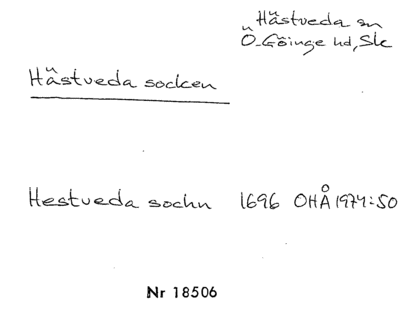 Hästveda sn
Ö. Göinge hd, Sk
Hästveda socken
Hestveda sochn 1696 OHÅ 1974:50
Nr 18506